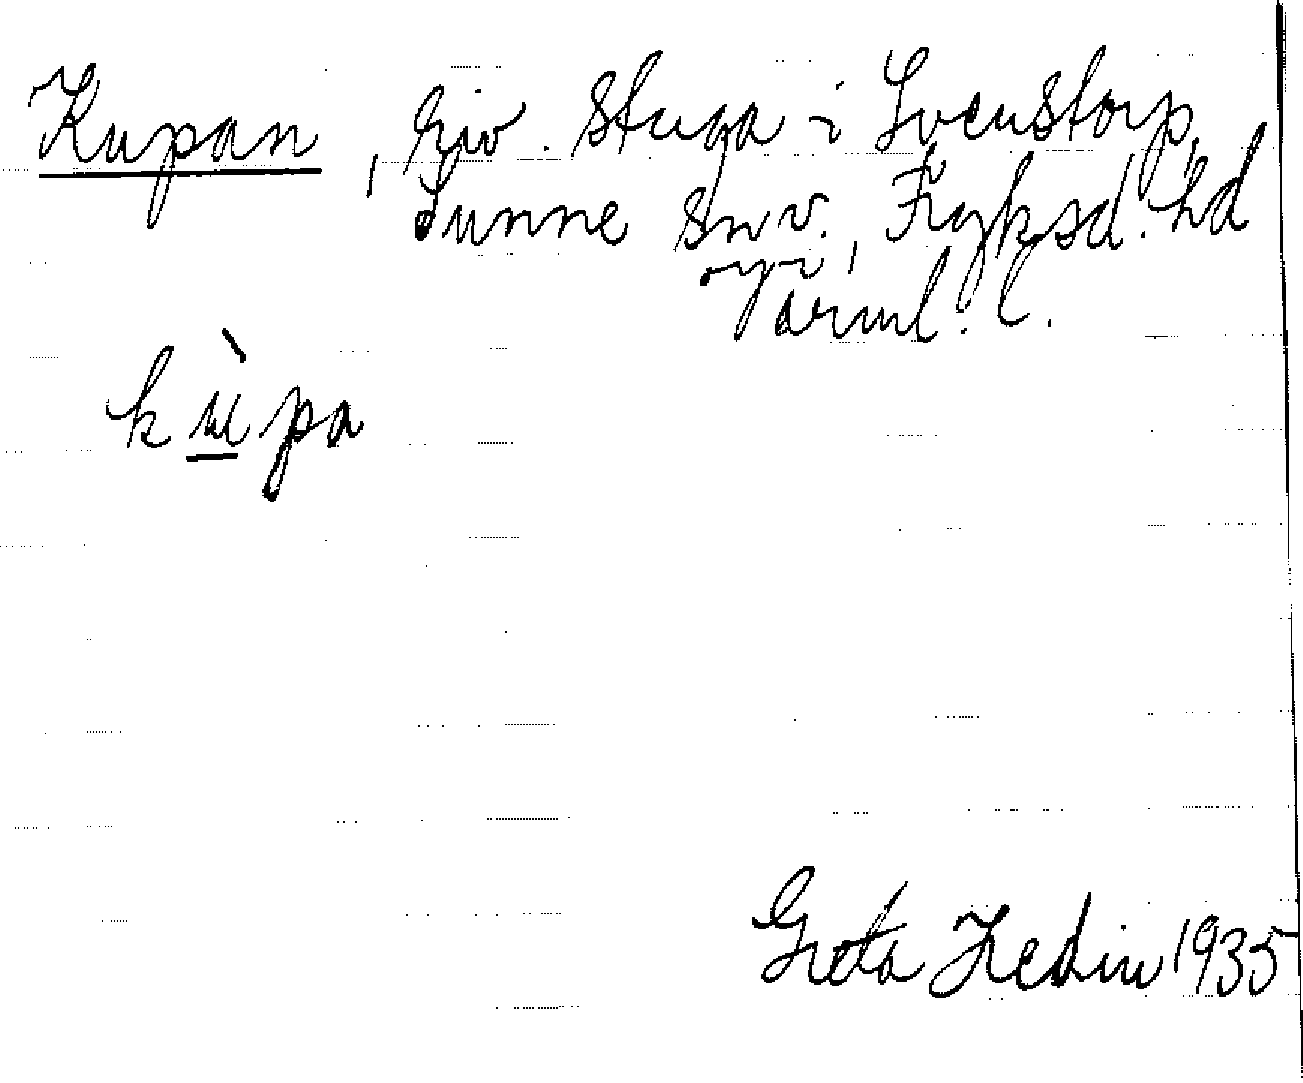 Kupan, riv. stuga i Svenstorp,
Sunne snv., Fryksd. hd
Värml. l.
kùpa
Greta Hedin 1935